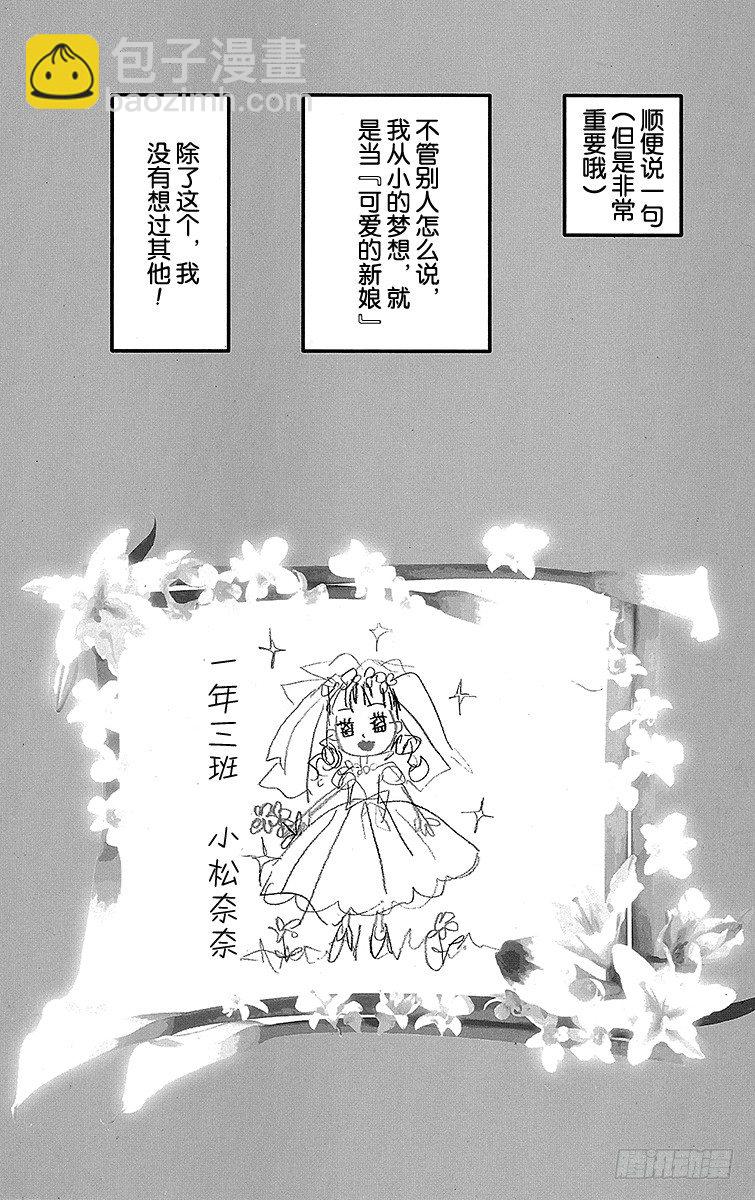 包子漫畫
baozimh.com
顺便说一句
（但是非常
重要哦）
不管别人怎么说，
我从小的梦想，就
是当『可爱的新娘』
除了这个，我
没有想过其他！
一年三班 小松奈奈
腾讯动漫